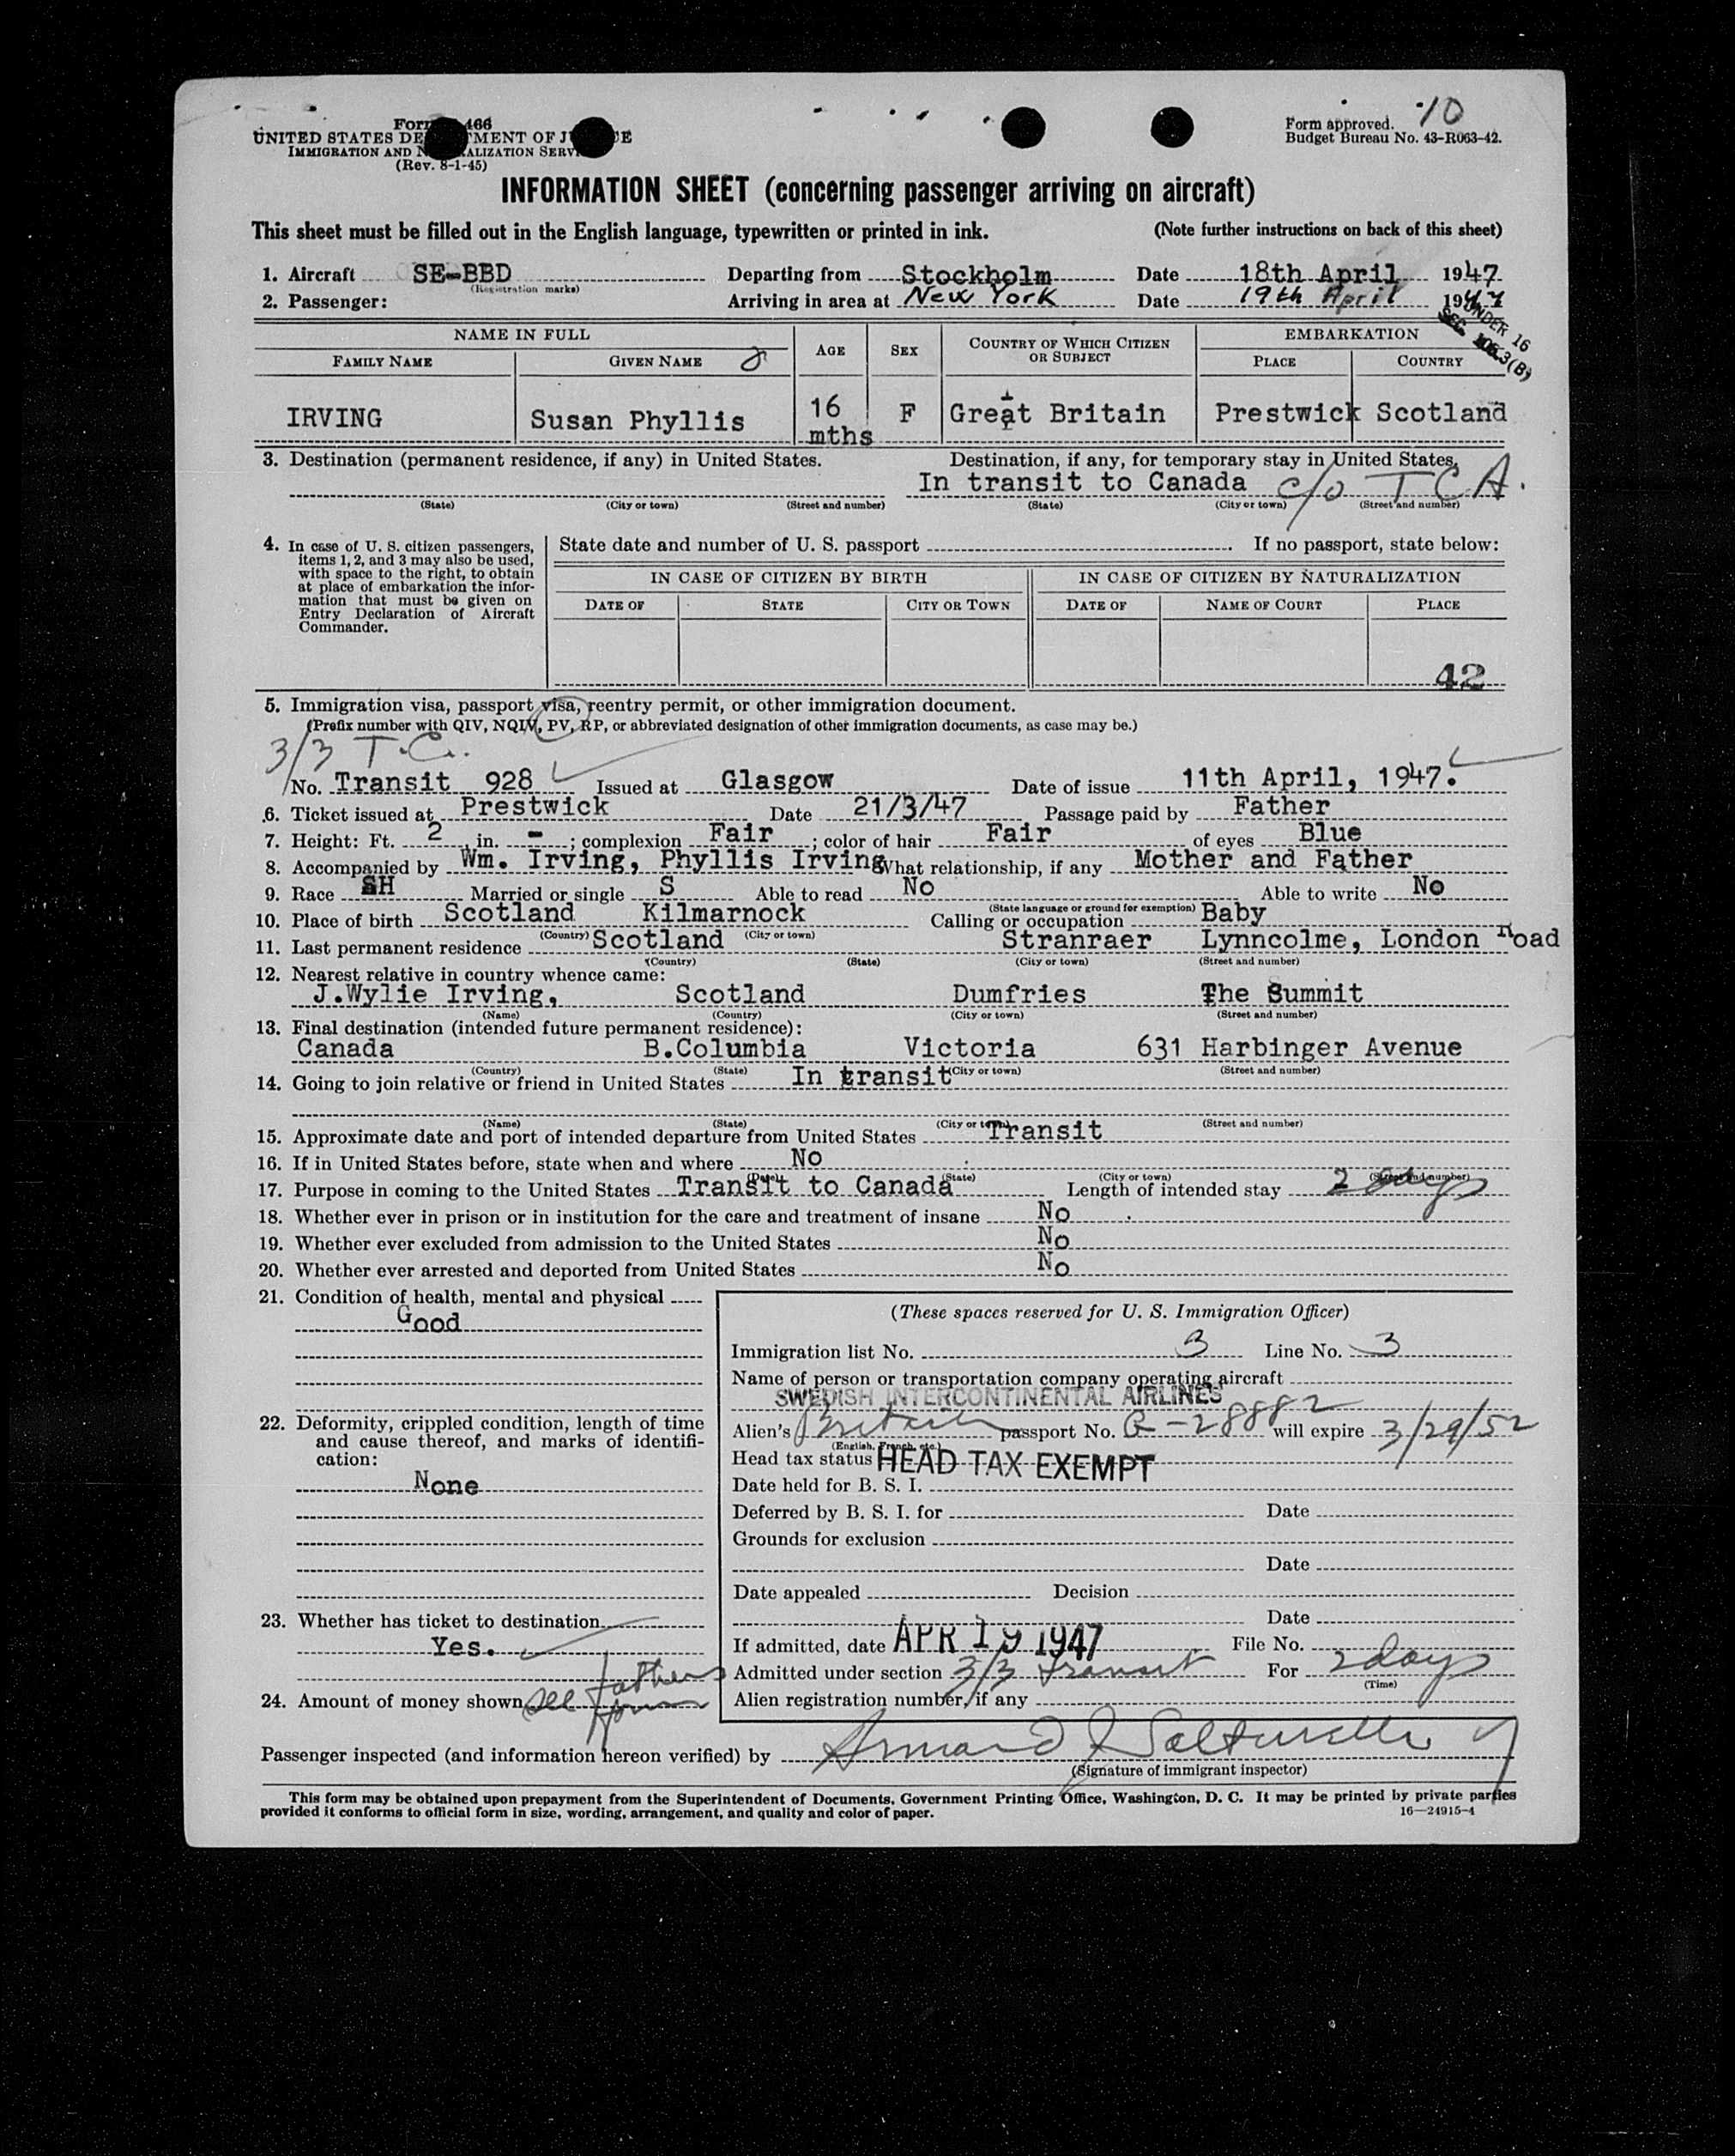 10
Form 466
UNITED STATES DE MENT OF J E
IMMIGRATION AND N ALIZATION SERV
(Rev. 8-1-45)
Form approved.
Budget Bureau No. 43-R063-42.
INFORMATION SHEET (concerning passenger arriving on aircraft)
This sheet must be filled out in the English language, typewritten or printed in ink. (Note further instructions on back of this sheet)
1. Aircraft SE-BBD Departing from Stockholm Date 18th April 1947
(Registration marks)
2. Passenger: Arriving in area at New York Date 19th April 1947
UNDER 16
SEC. 106.3(B)
NAME IN FULL AGE SEX COUNTRY OF WHICH CITIZEN OR SUBJECT EMBARKATION
FAMILY NAME GIVEN NAME PLACE COUNTRY
IRVING Susan Phyllis 16 mths F Great Britain Prestwick Scotland
3. Destination (permanent residence, if any) in United States. Destination, if any, for temporary stay in United States.
In transit to Canada c/o T C A.
(State) (City or town) (Street and number) (State) (City or town) (Street and number)
4. In case of U. S. citizen passengers, items 1, 2, and 3 may also be used, with space to the right, to obtain at place of embarkation the information that must be given on Entry Declaration of Aircraft Commander.
State date and number of U. S. passport If no passport, state below:
IN CASE OF CITIZEN BY BIRTH IN CASE OF CITIZEN BY NATURALIZATION
DATE OF STATE CITY OR TOWN DATE OF NAME OF COURT PLACE
42
5. Immigration visa, passport visa, reentry permit, or other immigration document.
(Prefix number with QIV, NQIV, PV, RP, or abbreviated designation of other immigration documents, as case may be.)
3/3 T.C.
No. Transit 928 Issued at Glasgow Date of issue 11th April, 1947.
6. Ticket issued at Prestwick Date 21/3/47 Passage paid by Father
7. Height: Ft. 2 in. - ; complexion Fair ; color of hair Fair of eyes Blue
8. Accompanied by Wm. Irving, Phyllis Irving What relationship, if any Mother and Father
9. Race SH Married or single S Able to read No Able to write No
(State language or ground for exemption)
10. Place of birth Scotland Kilmarnock Calling or occupation Baby
(Country) (City or town)
11. Last permanent residence Scotland Stranraer Lynncolme, London Road
(Country) (State) (City or town) (Street and number)
12. Nearest relative in country whence came:
J.Wylie Irving, Scotland Dumfries The Summit
(Name) (Country) (City or town) (Street and number)
13. Final destination (intended future permanent residence):
Canada B.Columbia Victoria 631 Harbinger Avenue
(Country) (State) (City or town) (Street and number)
14. Going to join relative or friend in United States In transit
(Name) (State) (City or town) (Street and number)
15. Approximate date and port of intended departure from United States Transit
16. If in United States before, state when and where No
(Date) (State) (City or town) (Street and number)
17. Purpose in coming to the United States Transit to Canada Length of intended stay 2 days
18. Whether ever in prison or in institution for the care and treatment of insane No
19. Whether ever excluded from admission to the United States No
20. Whether ever arrested and deported from United States No
21. Condition of health, mental and physical
Good
22. Deformity, crippled condition, length of time and cause thereof, and marks of identification:
None
23. Whether has ticket to destination
Yes.
24. Amount of money shown see fathers form
(These spaces reserved for U. S. Immigration Officer)
Immigration list No. 3 Line No. 3
Name of person or transportation company operating aircraft
SWEDISH INTERCONTINENTAL AIRLINES
Alien's British passport No. C-28882 will expire 3/29/52
(English, French, etc.)
Head tax status HEAD TAX EXEMPT
Date held for B. S. I.
Deferred by B. S. I. for Date
Grounds for exclusion
Date
Date appealed Decision
Date
If admitted, date APR 19 1947 File No.
Admitted under section 3/3 transit For 2 days
(Time)
Alien registration number, if any
Passenger inspected (and information hereon verified) by Armand J
(Signature of immigrant inspector)
This form may be obtained upon prepayment from the Superintendent of Documents, Government Printing Office, Washington, D. C. It may be printed by private parties
provided it conforms to official form in size, wording, arrangement, and quality and color of paper. 16—24915-4